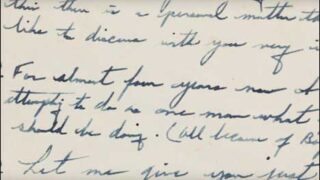 this then is a personal matter th
like to discuss with you very i
For almost four years now I
attempting to do as one man what
should be doing. (All because of Ba
Let me give you just